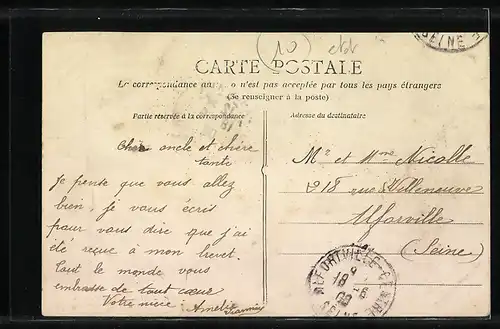 (10)
CARTE POSTALE
La correspondance au o n'est pas acceptée par tous les pays étrangers
(Se renseigner à la poste)
Partie réservée à la correspondance
Adresse du destinataire
Cher oncle et chère
tante
Je pense que vous allez
bien, je vous écris
pour vous dire que j'ai
été reçue à mon brevet.
Tout le monde vous
embrasse de tout cœur
Votre nièce : Amélie
Mr et Mme Nicolle
218 rue Villeneuve
Alforville
(Seine)
SEINE
ALFORTVILLE
SEINE